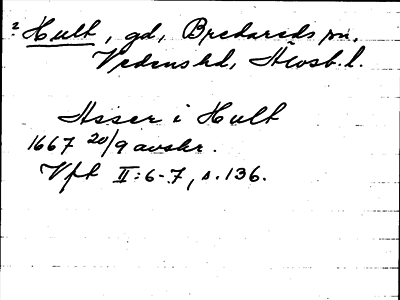 ? Hult, gd, Bredareds sn.
Vedens hd, Älvsb. l.
Asser i Hult
1667 20/9 avskr.
Vft II: 6-7, s. 136.